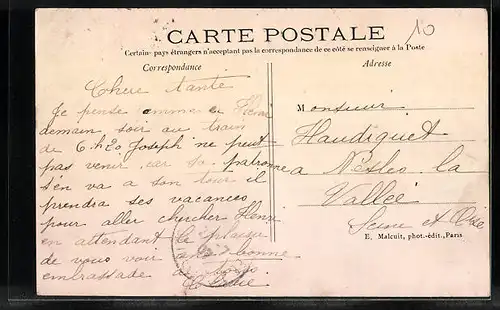 10
CARTE POSTALE
Certains pays étrangers n'acceptent pas la correspondance de ce côté se renseigner à la Poste
Correspondance
Adresse
Chere tante
Je pense emmener Henri
demain soir au train
de 6.h20 Joseph ne peut
pas venir car sa patronne
s'en va a son tour il
prendra ses vacances
pour aller chercher Henri
en attendant le plaisir
de vous voir une bonne
embrassade de tous
Monsieur
Haudiquet
a Nesles la
Vallée
Seine et Oise
E. Malcuit, phot.-édit., Paris